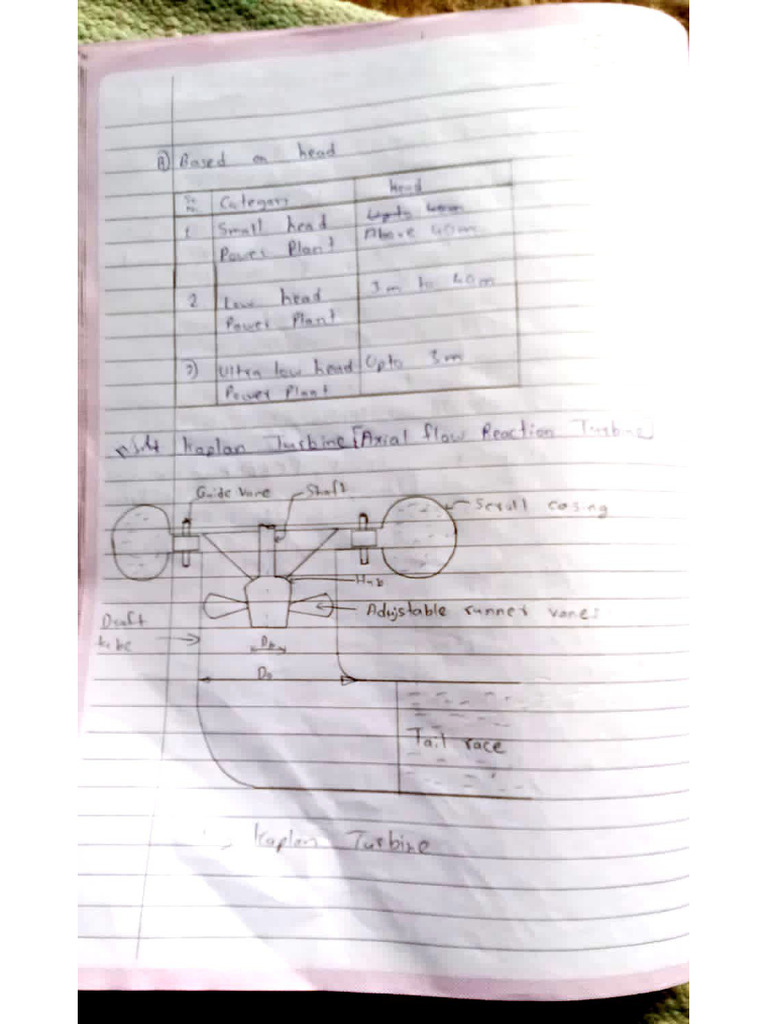 B) Based on head
Sr. No. Category head
1 Small head Upto 40m
Power Plant Above 40m
2 Low head 3m to 40m
Power Plant
3) Ultra low head Upto 3m
Power Plant
Kaplan Turbine [Axial flow Reaction Turbine]
Guide vane Shaft
Scroll casing
Hub
Adujstable runner vanes
Draft
tube
Db
Do
Tail race
Kaplan Turbine